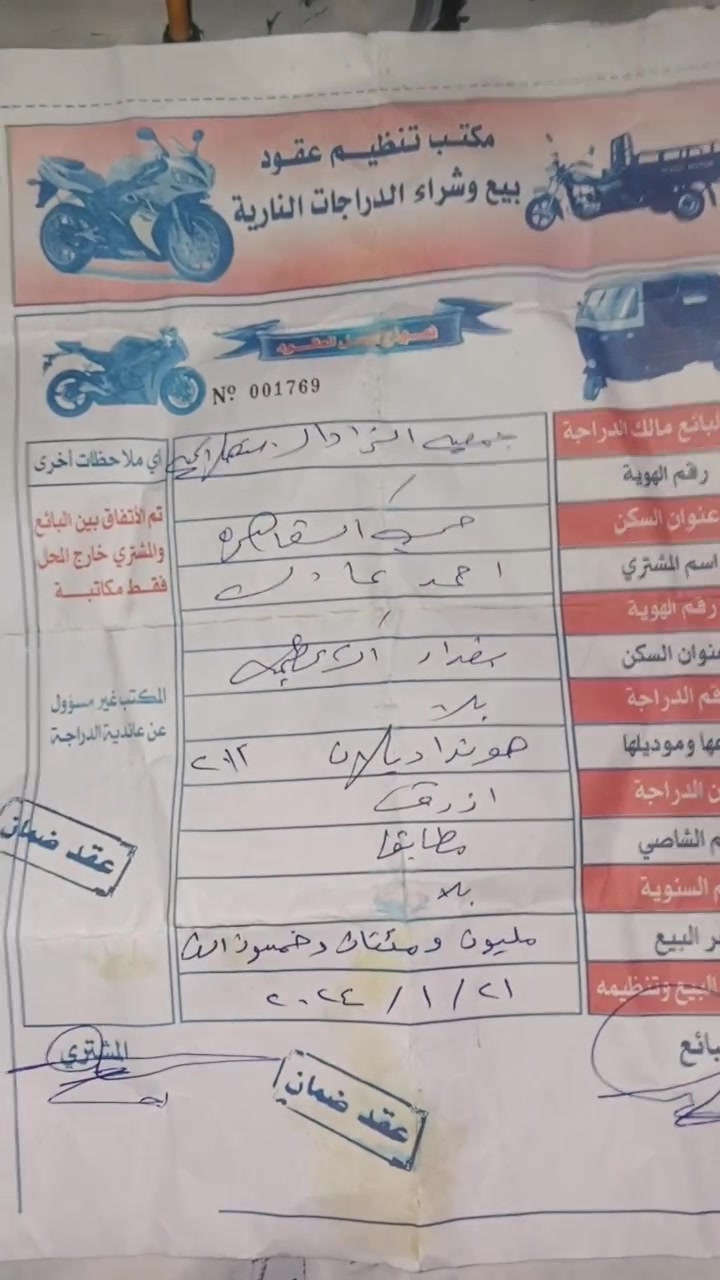 مكتب تنظيم عقود
بيع وشراء الدراجات النارية
Nº 001769
لبائع مالك الدراجة
جمعيه
رقم الهوية
/
عنوان السكن
حي القاهره
اسم المشتري
احمد عادل
رقم الهوية
/
عنوان السكن
بغداد الاعظميه
قم الدراجة
بلا
عها وموديلها
هوندا ديلان ٢٠١٢
ن الدراجة
ازرق
م الشاصي
مطابقا
م السنوية
بلا
ر البيع
مليون ومئتان وخمسون الف
البيع وتنظيمه
٢١ / ١ / ٢٠٢٤
أي ملاحظات أخرى
تم الأتفاق بين البائع
والمشتري خارج المحل
فقط مكاتبة
المكتب غير مسؤول
عن عائدية الدراجة
عقد ضمان
بائع
المشتري
عقد ضمان